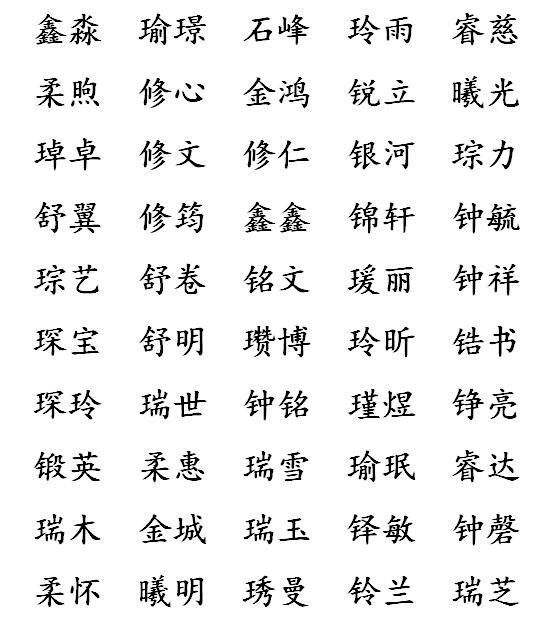 鑫淼 瑜璟 石峰 玲雨 睿慈
柔煦 修心 金鸿 锐立 曦光
琸卓 修文 修仁 银河 琮力
舒翼 修筠 鑫鑫 锦轩 钟毓
琮艺 舒卷 铭文 瑗丽 钟祥
琛宝 舒明 瓒博 玲昕 锆书
琛玲 瑞世 钟铭 瑾煜 铮亮
锻英 柔惠 瑞雪 瑜珉 睿达
瑞木 金城 瑞玉 铎敏 钟磬
柔怀 曦明 琇曼 铃兰 瑞芝